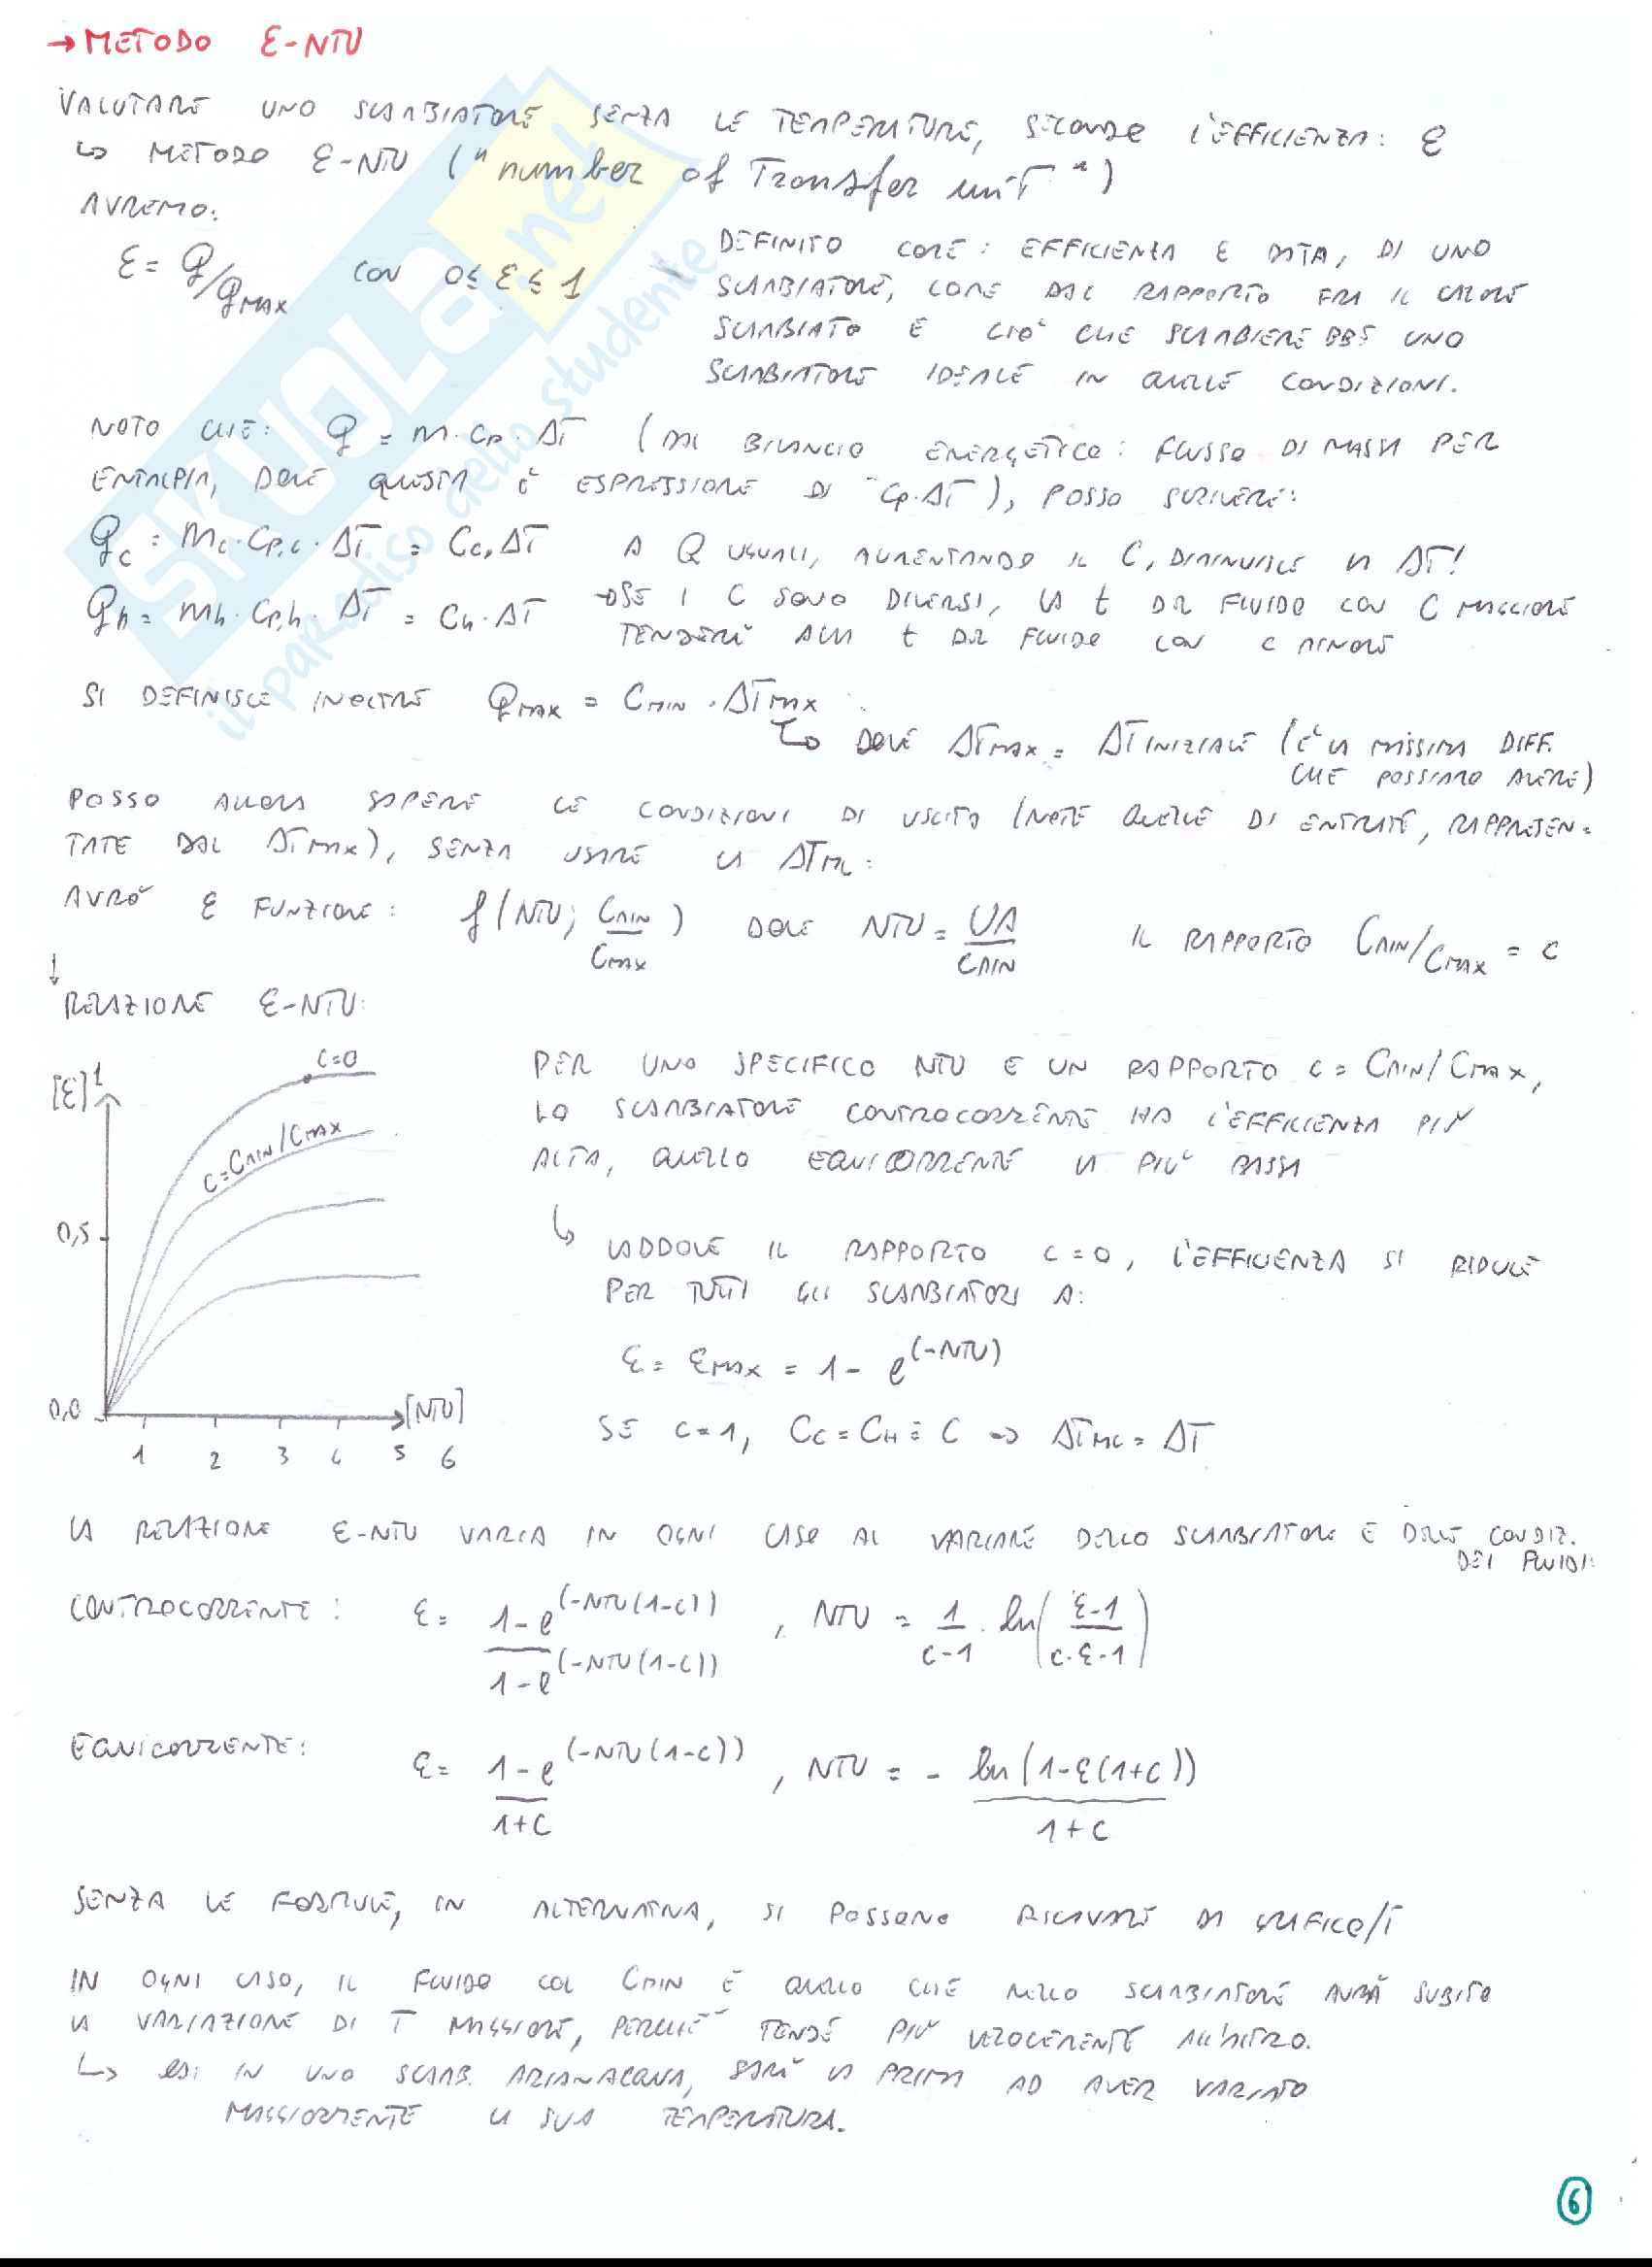 → METODO ε-NTU
VALUTARE UNO SCAMBIATORE SENZA LE TEMPERATURE, SECONDO L'EFFICIENZA: ε
↳ METODO ε-NTU ("number of Transfer uniT")
AVREMO:
ε = q/qMAX CON 0 ≤ ε ≤ 1
DEFINITO COME: EFFICIENZA E DATA, DI UNO
SCAMBIATORE, COME DAL RAPPORTO FRA IL CALORE
SCAMBIATO E CIO' CHE SCAMBIEREBBE UNO
SCAMBIATORE IDEALE IN QUELLE CONDIZIONI.
NOTO CHE: q = m·cp·ΔT (DAL BILANCIO ENERGETICO: FLUSSO DI MASSA PER
ENTALPIA, DOVE QUESTA È ESPRESSIONE DI cp·ΔT), POSSO SCRIVERE:
qc = mc·cp,c·ΔT = Cc·ΔT A Q UGUALI, AUMENTANDO IL C, DIMINUISCE LA ΔT!
qh = mh·cp,h·ΔT = Ch·ΔT → SE I C SONO DIVERSI, LA t DEL FLUIDO CON C MAGGIORE
TENDERÀ ALLA t DEL FLUIDO CON C MINORE
SI DEFINISCE INOLTRE qMAX = CMIN·ΔTMAX
↳ DOVE ΔTMAX = ΔT INIZIALE (È LA MASSIMA DIFF.
CHE POSSIAMO AVERE)
POSSO ALLORA SAPERE LE CONDIZIONI DI USCITA (NOTE QUELLE DI ENTRATE, RAPPRESEN=
TATE DAL ΔTMAX), SENZA USARE LA ΔTML:
AVRÒ ε FUNZIONE: f(NTU; CMIN/CMAX) DOVE NTU = UA/CMIN IL RAPPORTO CMIN/CMAX = c
↓
RELAZIONE ε-NTU:
[ε] 1
c=0
c=CMIN/CMAX
0,5
0,0
[NTU]
1 2 3 4 5 6
PER UNO SPECIFICO NTU E UN RAPPORTO c = CMIN/CMAX,
LO SCAMBIATORE CONTROCORRENTE HA L'EFFICIENZA PIÙ
ALTA, QUELLO EQUICORRENTE LA PIÙ BASSA
↳ LADDOVE IL RAPPORTO c=0, L'EFFICIENZA SI RIDUCE
PER TUTTI GLI SCAMBIATORI A:
ε = εMAX = 1 - e^(-NTU)
SE c=1, CC = CH = C ⇒ ΔTML = ΔT
LA RELAZIONE ε-NTU VARIA IN OGNI CASO AL VARIARE DELLO SCAMBIATORE E DELLE CONDIZ.
DEI FLUIDI:
CONTROCORRENTE: ε = 1-e^(-NTU(1-c)) / 1-e^(-NTU(1-c)) , NTU = 1/(c-1) · ln((ε-1)/(c·ε-1))
EQUICORRENTE: ε = 1-e^(-NTU(1-c)) / 1+c , NTU = - ln(1-ε(1+c)) / 1+c
SENZA LE FORMULE, IN ALTERNATIVA, SI POSSONO RICAVARE DA GRAFICO/I
IN OGNI CASO, IL FLUIDO COL CMIN È QUELLO CHE NELLO SCAMBIATORE AVRÀ SUBITO
LA VARIAZIONE DI T MAGGIORE, PERCHÉ TENDE PIÙ VELOCEMENTE ALL'ALTRO.
↳ es: IN UNO SCAMB. ARIA\ACQUA, SARÀ LA PRIMA AD AVER VARIATO
MAGGIORMENTE LA SUA TEMPERATURA.
6
SKUOLA.net
il paradiso dello studente